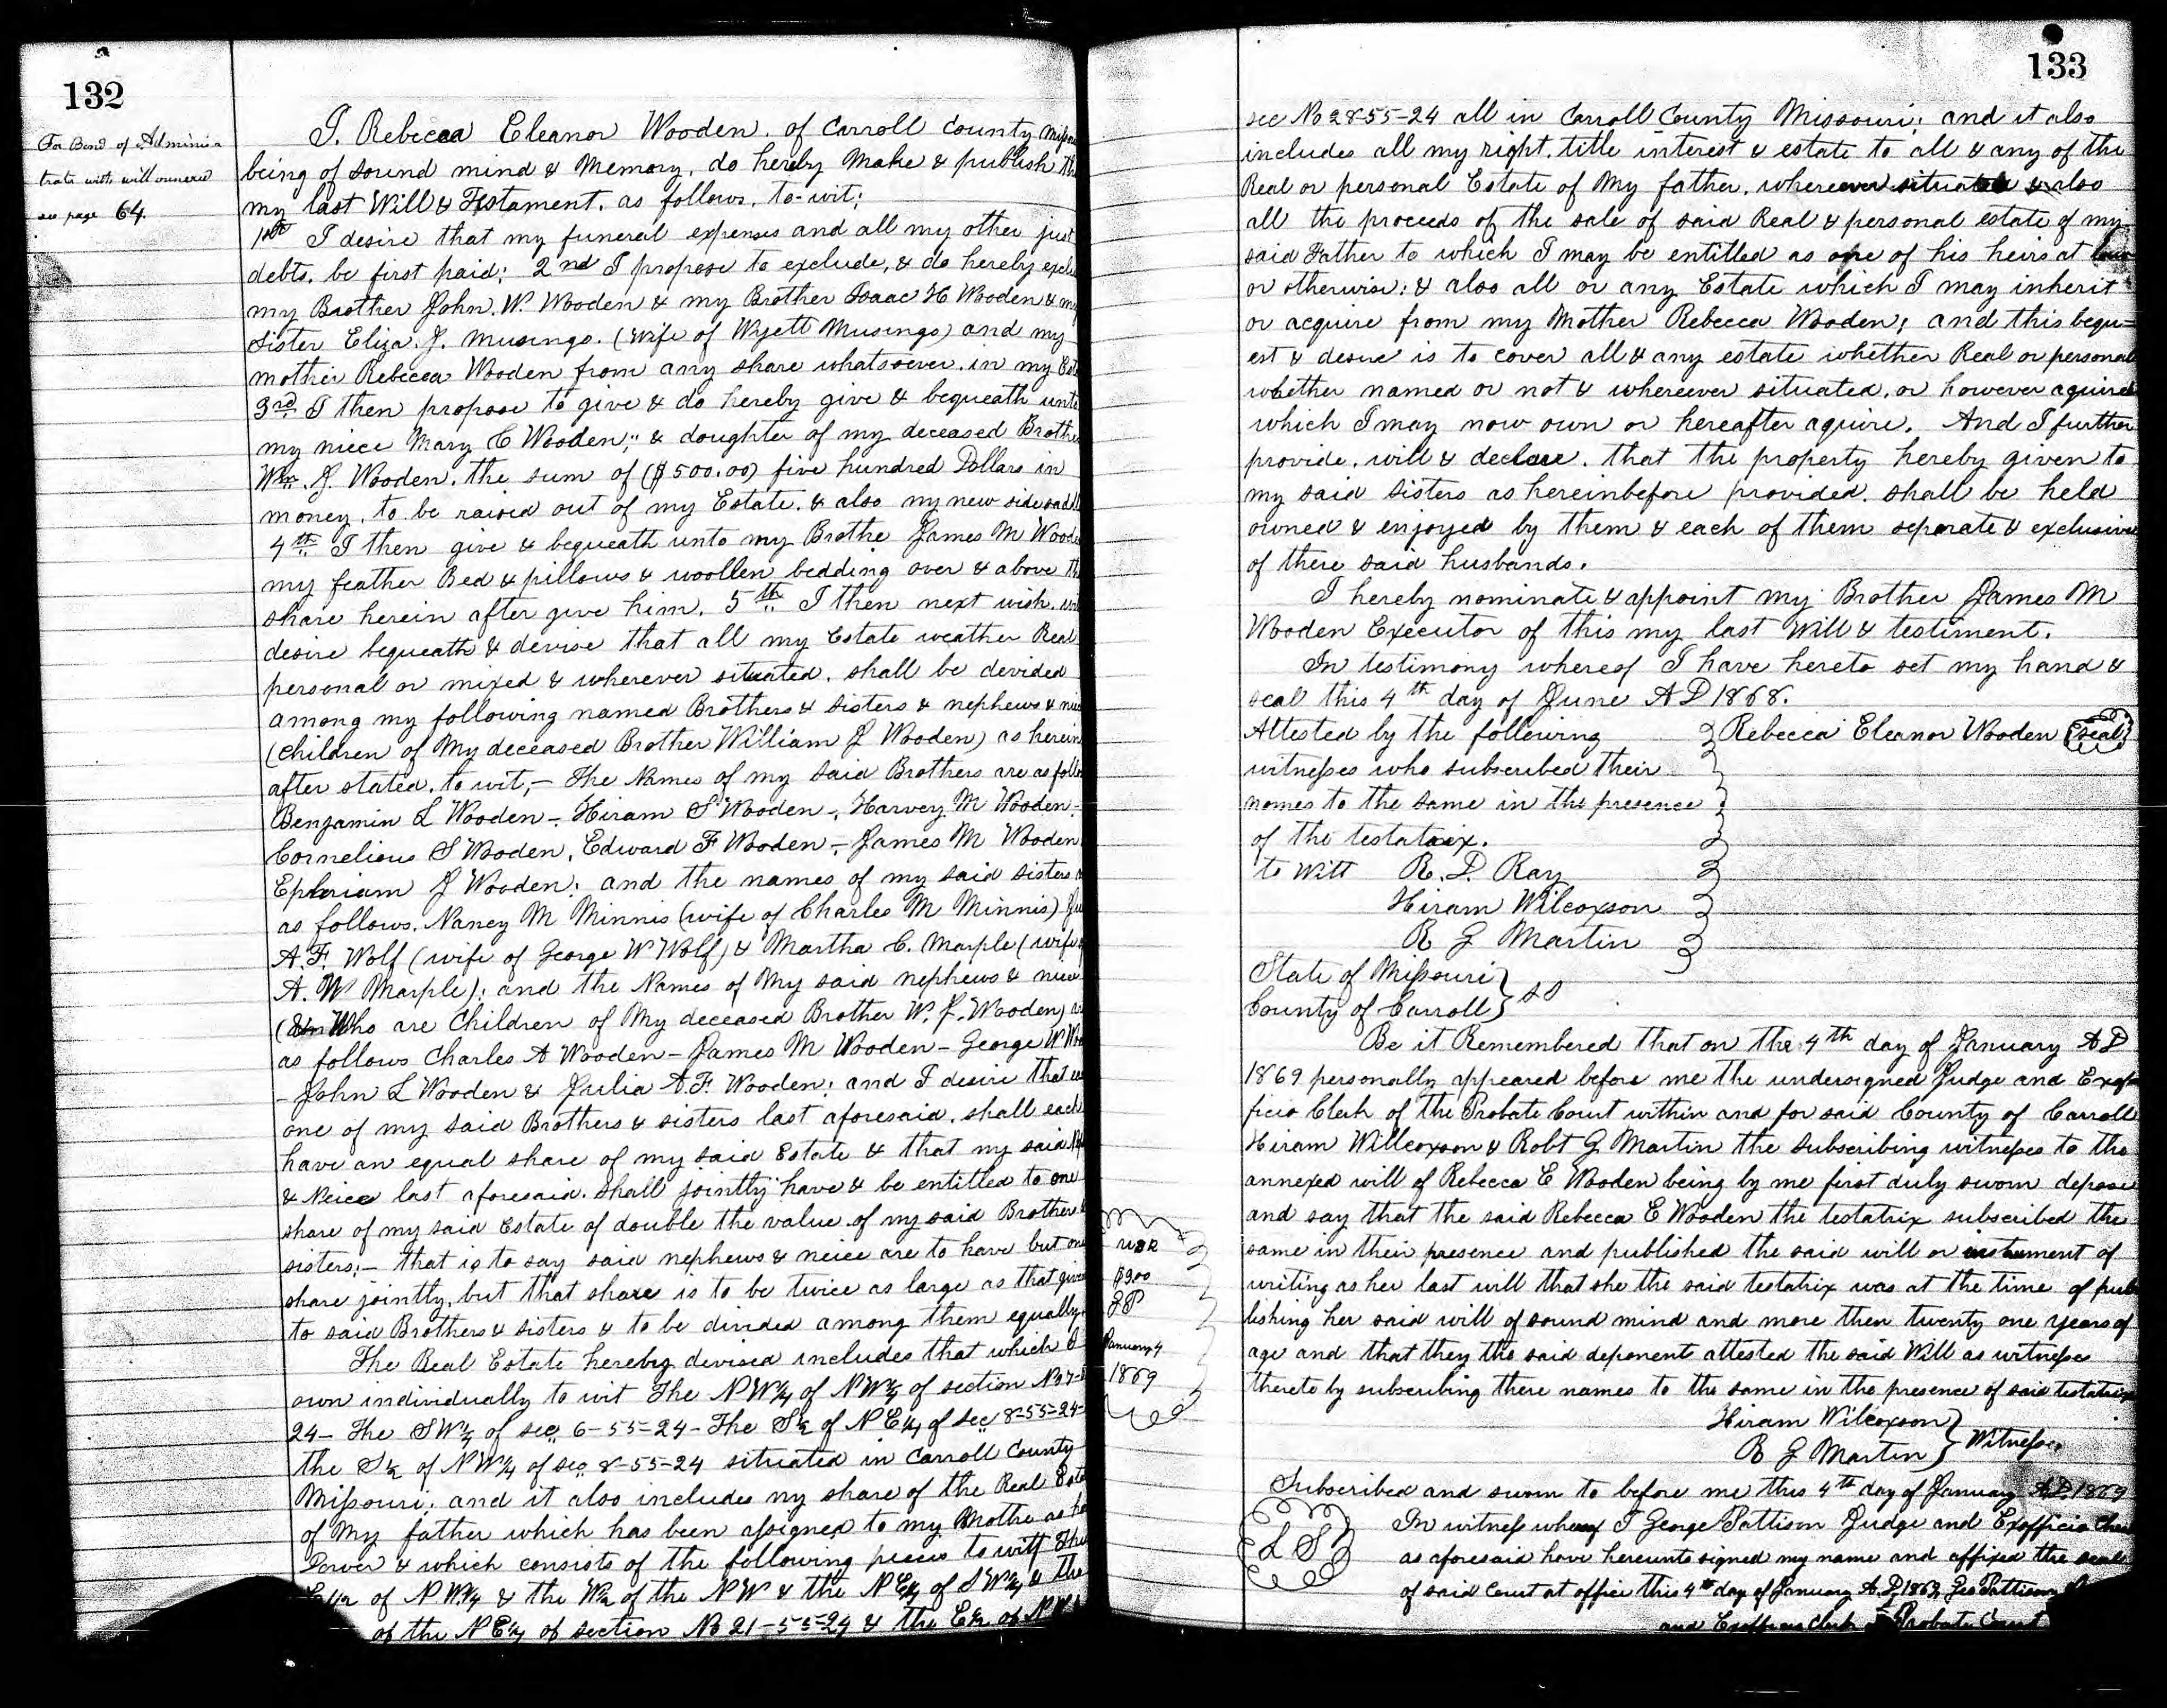 132
For Bond of Adminis
trato with will annexed
see page 64.
I. Rebecca Eleanor Wooden. of Carroll County Misso
being of sound mind & Memory, do hereby Make & publish th
my last Will & Testament. as follows. to-wit;
1st I desire that my funeral expenses and all my other just
debts. be first paid; 2nd I propose to exclude, & do hereby exclu
my Brother John. W. Wooden & my Brother Isaac H Wooden & my
Sister Eliza. J. Musingo. (wife of Wyett Musingo) and my
mother Rebecca Wooden from any share whatsoever. in my Esta
3rd I then propose to give & do hereby give & bequeath unto
my niece Mary C Wooden; & doughter of my deceased Brother
Wm. J. Wooden. the sum of ($500.00) five hundred Dollars in
money, to be raised out of my Estate. & also my new side saddl
4th I then give & bequeath unto my Brothe James M Woode
my feather Bed & pillows & woollen bedding over & above th
share herein after give him. 5th I then next wish.
desire bequeath & devise that all my Estate weather Real
personal or mixed & wherever situated. shall be devided
among my following named Brothers & sisters & nephews & niec
(children of My deceased Brother William J Wooden) as herein
after stated. to wit;- The Names of my said Brothers are as follo
Benjamin L Wooden -. Hiram S Wooden -. Harvey M Wooden -
Cornelious S Wooden, Edward F Wooden -, James M Wooden
Ephriam J Wooden; and the names of my said sisters a
as follows. Nancy M Minnis (wife of Charles M Minnis) Ju
A. F. Wolf (wife of George W Wolf) & Martha C. Marple (wife o
A. W Marple); and the Names of My said nephews & niece
(Who are Children of My deceased Brother W. J. Wooden) ar
as follows Charles A Wooden - James M Wooden - George W Woo
- John L Wooden & Julia A. F. Wooden; and I desire that
one of my said Brothers & sisters last aforesaid. shall each
have an equal share of my said Estate & that my said Ne
& Neice last aforesaid. shall jointly have & be entitled to one
share of my said Estate of double the value of my said Brother &
sisters;- that is to say said nephews & neice are to have but one
share jointly, but that share is to be twice as large as that given
to said Brothers & sisters & to be divided among them equally.
The Real Estate hereby devised includes that which I
own individually to wit The NW¼ of NW¼ of section No 7-
24- The SW¼ of sec. 6-55-24- The S½ of NE¼ of sec 8-55-24-
the S½ of NW¼ of sec. 8-55-24 situated in Carroll County
Missouri; and it also includes my share of the Real Esta
of My father which has been assigned to my Mothe as he
Dower & which consists of the following pieces to witt The
of NW¼ & the W½ of the NW & the NE¼ of SW¼ & the
of the NE¼ of section No 21-55-24 & the E½ of NW
USR
$300
January 4
1869
133
sec No 28-55-24 all in Carroll County Missouri; and it also
includes all my right. title interest & estate to all & any of the
Real or personal Estate of My father. whereever situated & also
all the proceeds of the sale of said Real & personal estate of my
said Father to which I may be entitled as one of his heirs at law
or otherwise; & also all or any Estate which I may inherit
or acquire from my Mother Rebecca Wooden; and this bequ=
est & desire is to cover all & any estate whether Real or personal
whether named or not & whereever situated, or however aquired
which I may now own or hereafter aquire. And I further
provide. will & declare. that the property hereby given to
my said sisters as hereinbefore provided. shall be held
owned & enjoyed by them & each of them seperate & exclusive
of there said husbands.
I hereby nominate & appoint my Brother James M
Wooden Executor of this my last Will & testiment.
In testimony whereof I have hereto set my hand &
seal this 4th day of June AD 1868.
Attested by the following Rebecca Eleanor Wooden (Seal)
witnesses who subscribed their
names to the same in the presence
of the testatrix.
to Witt R. D. Ray
Hiram Wilcoxson
R G Martin
State of Missouri
County of Carroll } SS
Be it Remembered that on the 4th day of January AD
1869 personally appeared before me the undersigned Judge and Exof
ficio Clerk of the Probate Court within and for said County of Carroll
Hiram Willcoxson & Robt G Martin the subscribing witnesses to the
annexed will of Rebecca E Wooden being by me first duly sworn depose
and say that the said Rebecca E Wooden the testatrix subscribed the
same in their presence and published the said will or instrument of
writing as her last will that she the said testatrix was at the time of pub
lishing her said will of sound mind and more then twenty one years of
age and that they the said deponent attested the said Will as witnesse
thereto by subscribing there names to the same in the presence of said testatrix
Hiram Wilcoxson
R G Martin } Witnesses
Subscribed and sworn to before me this 4th day of January AD. 1869
L S In witness whereof I George Pattison Judge and Exofficio Clerk
as aforesaid have hereunto signed my name and affixed the seal
of said Court at office this 4th day of January A. D. 1869 Geo Pattison
and Exofficio Clerk of Probate Court